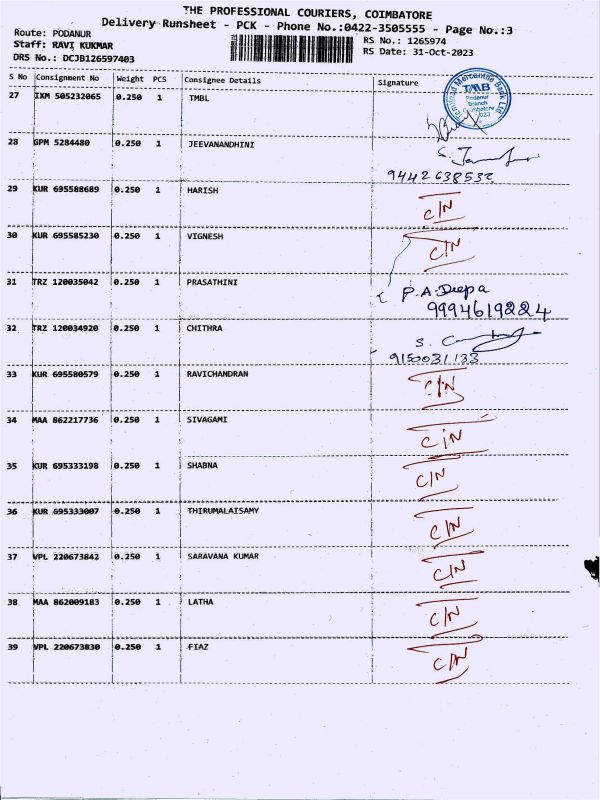 THE PROFESSIONAL COURIERS, COIMBATORE
Delivery Runsheet - PCK - Phone No.:0422-3505555 - Page No.:3
Route: PODANUR
RS No.: 1265974
Staff: RAVI KUKMAR
RS Date: 31-Oct-2023
DRS No.: DCJB126597403
S No Consignment No Weight PCS Consignee Details Signature
27 IXM 505232065 0.250 1 TMBL
TMB
Podanur
Branch
Coimbatore
28 GPM 5284480 0.250 1 JEEVANANDHINI
9442638532
29 KUR 695588689 0.250 1 HARISH C/N
30 KUR 695585230 0.250 1 VIGNESH C/N
31 TRZ 120035042 0.250 1 PRASATHINI P.A.Deepa
9994619224
32 TRZ 120034920 0.250 1 CHITHRA
9150031133
33 KUR 695580579 0.250 1 RAVICHANDRAN C/N
34 MAA 862217736 0.250 1 SIVAGAMI C/N
35 KUR 695333198 0.250 1 SHABNA C/N
36 KUR 695333007 0.250 1 THIRUMALAISAMY C/N
37 VPL 220673842 0.250 1 SARAVANA KUMAR C/N
38 MAA 862009183 0.250 1 LATHA C/N
39 VPL 220673830 0.250 1 FIAZ C/N